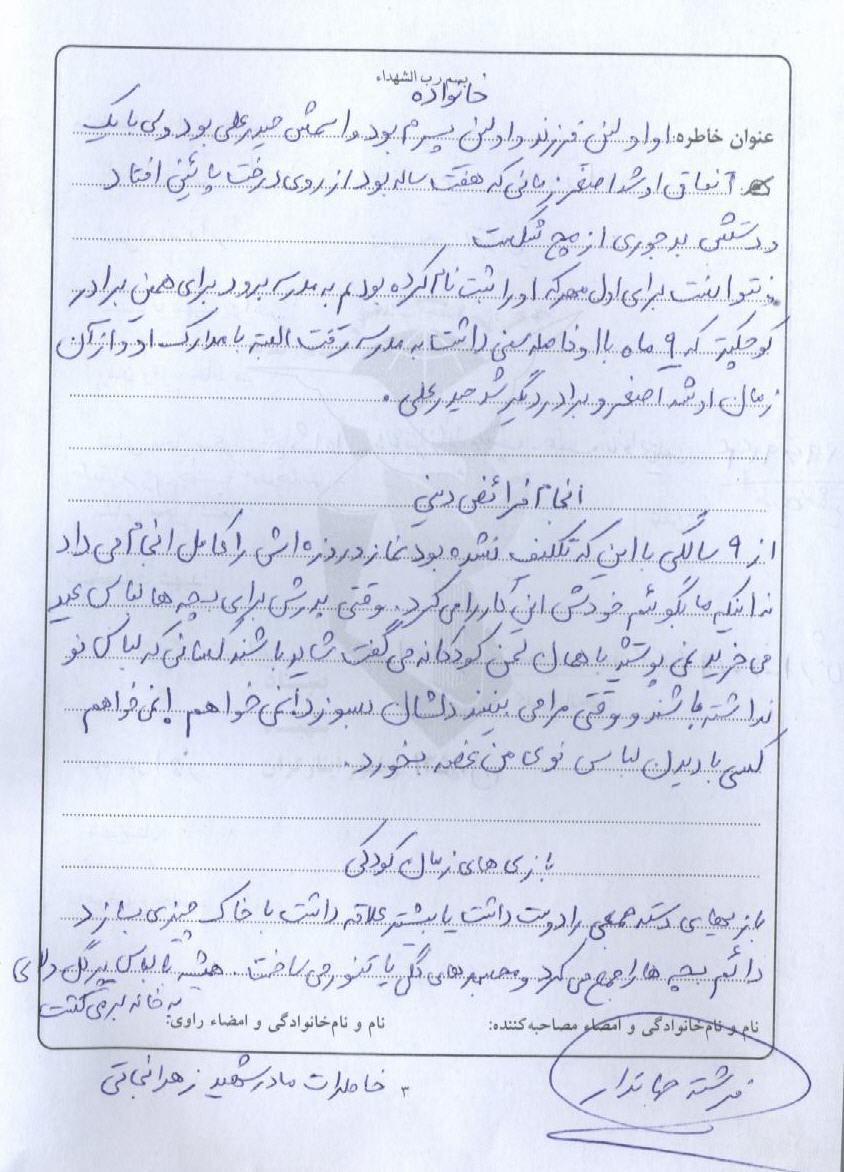 بسم رب الشهداء
خانواده
عنوان خاطره: او اولین فرزند و اولین پسرم بود و اسمش حیدرعلی بود ولی با یک
اتفاق او شد اصغر زمانی که هفت ساله بود از روی درخت پائین افتاد
و دستش بدجوری از مچ شکست
نتوانست برای اول مهر که او را ثبت نام کرده بودم به مدرسه برود برای همین برادر
کوچکتر که ۹ ماه با او فاصله سنی داشت به مدرسه رفت البته با مدارک او و از آن
زمان او شد اصغر و برادر دیگر شد حیدرعلی.
انجام فرائض دینی
از ۹ سالگی با این که تکلیف نشده بود نماز و روزه اش را کامل انجام می داد
نه اینکه ما بگوئیم خودش این کار را می کرد. وقتی پدرش برای بچه ها لباس عید
می خرید نمی پوشید با همان لحن کودکانه می گفت شاید باشند کسانی که لباس نو
نداشته باشند و وقتی مرا می بینند دلشان بسوزد نمی خواهم! نمی خواهم
کسی با دیدن لباس نوی من غصه بخورد.
بازی های زمان کودکی
بازیهای دسته جمعی را دوست داشت یا بیشتر علاقه داشت با خاک چیزی بسازد
دائم بچه ها را جمع می کرد و مجسمه های گلی یا تنور می ساخت. همیشه با لباس پر گل
به خانه برمی گشت
نام و نام‌خانوادگی و امضاء مصاحبه‌کننده: نام و نام‌خانوادگی و امضاء راوی:
فرشته جهاندار ۳ خاطرات مادر شهید زهرا نجاتی